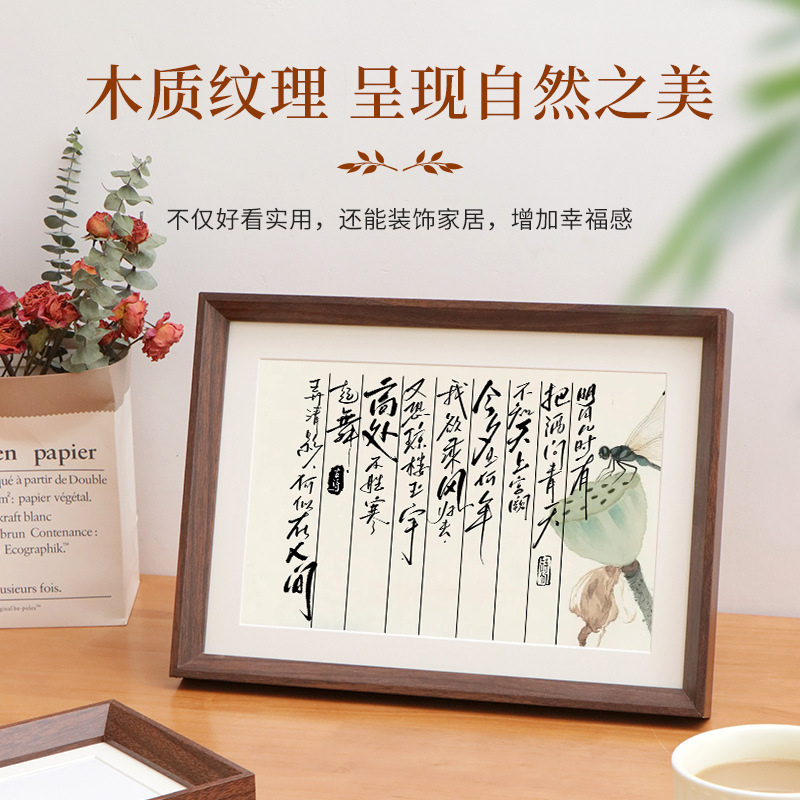 木质纹理 呈现自然之美
不仅好看实用，还能装饰家居，增加幸福感
明月几时有
把酒问青天
不知天上宫阙
今夕是何年
我欲乘风归去
又恐琼楼玉宇
高处不胜寒
起舞
弄清影 何似在人间
en papier
qué à partir de Double
m²: papier végétal.
kraft blanc
brun Contenance :
Ecographik.™
usieurs fois.